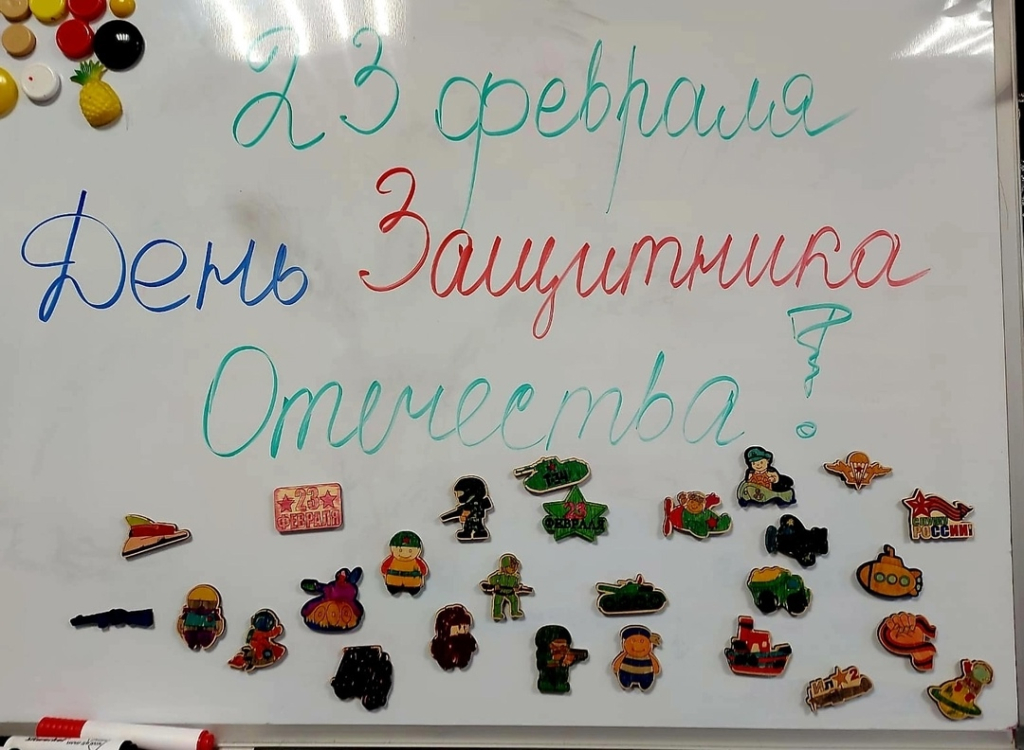 23 февраля
День Защитника
Отечества!
23
ФЕВРАЛЯ
23
ФЕВРАЛЯ
СЛУЖУ
РОССИИ!
ИЛ 2